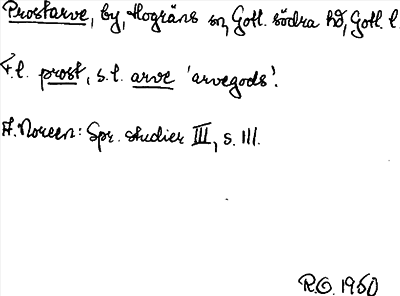 Prostarve, by, Hogräns sn, Gotl. södra hd, Gotl. l.
F.l. prost, s.l. arve 'arvegods'.
A. Noreen: Spr. studier III, s. 111.
R.O. 1960